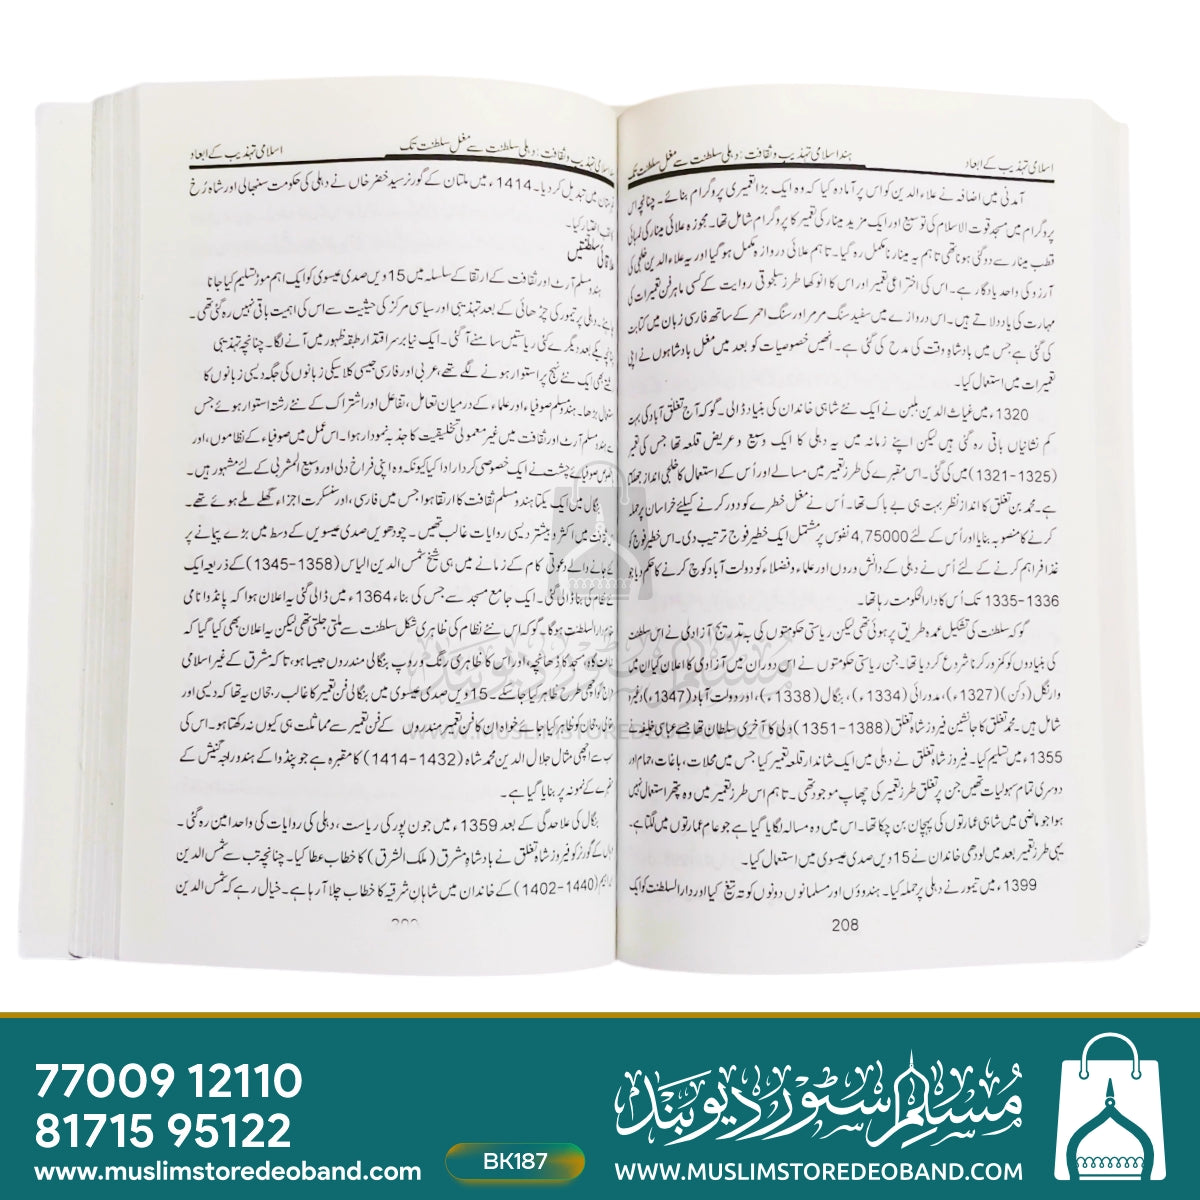 اسلامی تہذیب کے ابعاد
ہند اسلامی تہذیب و ثقافت : دہلی سلطنت سے مغل سلطنت تک
آمدنی میں اضافہ نے علاء الدین کو اس پر آمادہ کیا کہ وہ ایک بڑا تعمیری پروگرام بنائے۔ چنانچہ اس
پروگرام میں مسجد قوت الاسلام کی توسیع اور ایک مزید مینار کی تعمیر کا پروگرام شامل تھا۔ مجوزہ علائی مینار کی لمبائی
قطب مینار سے دو گنی ہونا تھی تاہم یہ مینار نامکمل رہ گیا۔ تاہم علائی دروازہ مکمل ہو گیا اور یہ علاء الدین خلجی کی
آرزو کی واحد یادگار ہے۔ اس کی اختراعی تعمیر اور اس کا انوکھا طرز سلجوقی روایت کے کسی ماہر فن تعمیرات کی
مہارت کی یاد دلاتے ہیں۔ اس دروازے میں سفید سنگ مرمر اور سنگ احمر کے ساتھ فارسی زبان میں کتابت
کی گئی ہے جس میں بادشاہِ وقت کی مدح کی گئی ہے۔ انھیں خصوصیات کو بعد میں مغل بادشاہوں نے اپنی
تعمیرات میں استعمال کیا۔
1320ء میں غیاث الدین بلبن نے ایک نئے شاہی خاندان کی بنیاد ڈالی۔ گو کہ آج تغلق آباد کی بہت
کم نشانیاں باقی رہ گئی ہیں لیکن اپنے زمانہ میں یہ دہلی کا ایک وسیع و عریض قلعہ تھا جس کی تعمیر
(1321-1325) میں کی گئی۔ اس مقبرے کی طرز تعمیر میں مسالے اور اُس کے استعمال کا خلجی انداز جھلکتا
ہے۔ محمد بن تغلق کا انداز نظر بہت ہی بے باک تھا۔ اُس نے مغل خطرے کو دور کرنے کیلئے خراسان پر حملہ
کرنے کا منصوبہ بنایا اور اُس کے لئے 4,75000 نفوس پر مشتمل ایک خطیر فوج ترتیب دی۔ اس خطیر فوج کو
غذا فراہم کرنے کے لئے اُس نے دہلی کے دانش وروں اور علماء و فضلاء کو دولت آباد کوچ کرنے کا حکم دیا جو
1335-1336 تک اُس کا دارالحکومت رہا تھا۔
گو کہ سلطنت کی تشکیل عمدہ طریق پر ہوئی تھی لیکن ریاستی حکومتوں کی بہ تدریج آزادی نے اس سلطنت
کی بنیادوں کو کمزور کرنا شروع کر دیا تھا۔ جن ریاستی حکومتوں نے اس دوران میں آزادی کا اعلان کیا ان میں
وارنگل (دکن) (1327ء)، مدورائی (1334ء)، بنگال (1338ء)، اور دولت آباد (1347ء) وغیرہ
شامل ہیں۔ محمد تغلق کا جانشین فیروز شاہ تغلق (1351-1388) دہلی کا آخری سلطان تھا جسے عباسی خلیفہ نے
1355 میں تسلیم کیا۔ فیروز شاہ تغلق نے دہلی میں ایک شاندار قلعہ تعمیر کیا جس میں محلات، باغات، حمام اور
دوسری تمام سہولیات تھیں جن پر تغلق طرز تعمیر کی چھاپ موجود تھی۔ تاہم اس طرز تعمیر میں وہ پتھر استعمال نہیں
ہوا جو ماضی میں شاہی عمارتوں کی پہچان بن چکا تھا۔ اس میں وہ مسالہ لگایا گیا ہے جو عام عمارتوں میں لگتا ہے۔
یہی طرز تعمیر بعد میں لودھی خاندان نے 15 ویں صدی عیسوی میں استعمال کیا۔
1399ء میں تیمور نے دہلی پر حملہ کیا۔ ہندوؤں اور مسلمانوں دونوں کو تہ تیغ کیا اور دارالسلطنت کو ایک
208
اسلامی تہذیب و ثقافت : دہلی سلطنت سے مغل سلطنت تک
اسلامی تہذیب کے ابعاد
میں تبدیل کر دیا۔ 1414ء میں ملتان کے گورنر سید خضر خاں نے دہلی کی حکومت سنبھالی اور شاہ رُخ
اختیار کیا۔
علاقائی سلطنتیں
ہندو مسلم آرٹ اور ثقافت کے ارتقا کے سلسلہ میں 15 ویں صدی عیسوی کو ایک اہم موڑ تسلیم کیا جاتا
دہلی پر تیمور کی چڑھائی کے بعد تہذیبی اور سیاسی مرکز کی حیثیت سے اس کی اہمیت باقی نہیں رہ گئی تھی۔
کے بعد دیگرے کئی ریاستیں سامنے آ گئی۔ ایک نیا برسر اقتدار طبقہ ظہور میں آنے لگا۔ چنانچہ تہذیبی
بھی ایک نئے نہج پر استوار ہونے لگے تھے، عربی اور فارسی جیسی کلاسیکی زبانوں کی جگہ دیسی زبانوں کا
بڑھا۔ ہندو مسلم صوفیاء اور علماء کے درمیان تعامل، تفاعل اور اشتراک کے نئے رشتہ استوار ہوئے جس
ہندو مسلم آرٹ اور ثقافت میں غیر معمولی تخلیقیت کا جذبہ نمودار ہوا۔ اس عمل میں صوفیاء کے نظاموں، اور
صوفیائے چشت نے ایک خصوصی کردار ادا کیا کیونکہ وہ اپنی فراخ دلی اور وسیع المشربی کے لئے مشہور ہیں۔
بنگال میں ایک یکتا ہندو مسلم ثقافت کا ارتقا ہوا جس میں فارسی، اور سنسکرت اجزاء گھلے ملے ہوئے تھے۔
میں اکثر و بیشتر دیسی روایات غالب تھیں۔ چودھویں صدی عیسوی کے وسط میں بڑے پیمانے پر
جانے والے دعوتی کام کے زمانے میں ہی شیخ شمس الدین الیاس (1345-1358) کے ذریعہ ایک
کی بنا ڈالی گئی۔ ایک جامع مسجد سے جس کی بناء 1364ء میں ڈالی گئی یہ اعلان ہوا کہ پانڈوا نامی
دارالسلطنت ہوگا۔ گو کہ اس نئے نظام کی ظاہری شکل سلطنت سے ملتی جلتی تھی لیکن یہ اعلان بھی کیا گیا کہ
مسجد کا ڈھانچہ، اور اس کا ظاہری رنگ و روپ بنگالی مندروں جیسا ہو، تاکہ مشرق کے غیر اسلامی
اچھی طرح ظاہر کیا جا سکے۔ 15 ویں صدی عیسوی میں بنگالی فن تعمیر کا غالب رجحان یہ تھا کہ دیسی اور
کو ظاہر کیا جائے خواہ ان کا فن تعمیر مندروں کے فن تعمیر سے مماثلت ہی کیوں نہ رکھتا ہو۔ اس کی
سب سے اچھی مثال جلال الدین محمد شاہ (1414-1432) کا مقبرہ ہے جو پنڈوا کے ہندو راجہ گنیش کے
کے نمونہ پر بنایا گیا ہے۔
بنگال کی علاحدگی کے بعد 1359ء میں جون پور کی ریاست، دہلی کی روایات کی واحد امین رہ گئی۔
کے گورنر کو فیروز شاہ تغلق نے بادشاہِ مشرق (ملک الشرق) کا خطاب عطا کیا۔ چنانچہ تب سے شمس الدین
(1402-1440) کے خاندان میں شاہانِ شرقیہ کا خطاب چلا آ رہا ہے۔ خیال رہے کہ شمس الدین
مسلم سٹور دیوبند
WWW.MUSLIMSTOREDEOBAND.COM
77009 12110
81715 95122
www.muslimstoredeoband.com
BK187
مسلم سٹور دیوبند
WWW.MUSLIMSTOREDEOBAND.COM